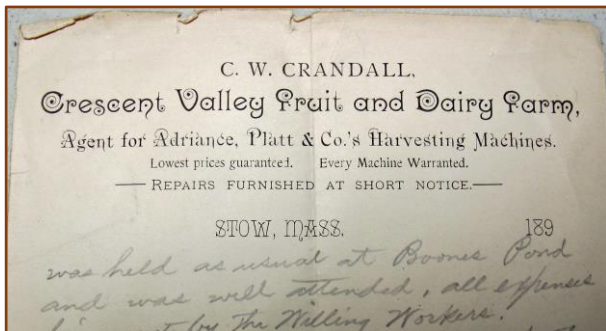 C. W. CRANDALL,
Crescent Valley Fruit and Dairy Farm,
Agent for Adriance, Platt & Co.'s Harvesting Machines.
Lowest prices guaranteed. Every Machine Warranted.
REPAIRS FURNISHED AT SHORT NOTICE.
STOW, MASS. 189
was held as usual at Boones Pond
and was well attended, all expenses
by The Willing Workers.